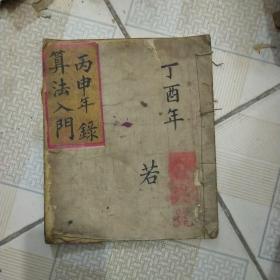 丁酉年
若
丙申年錄
算法入門